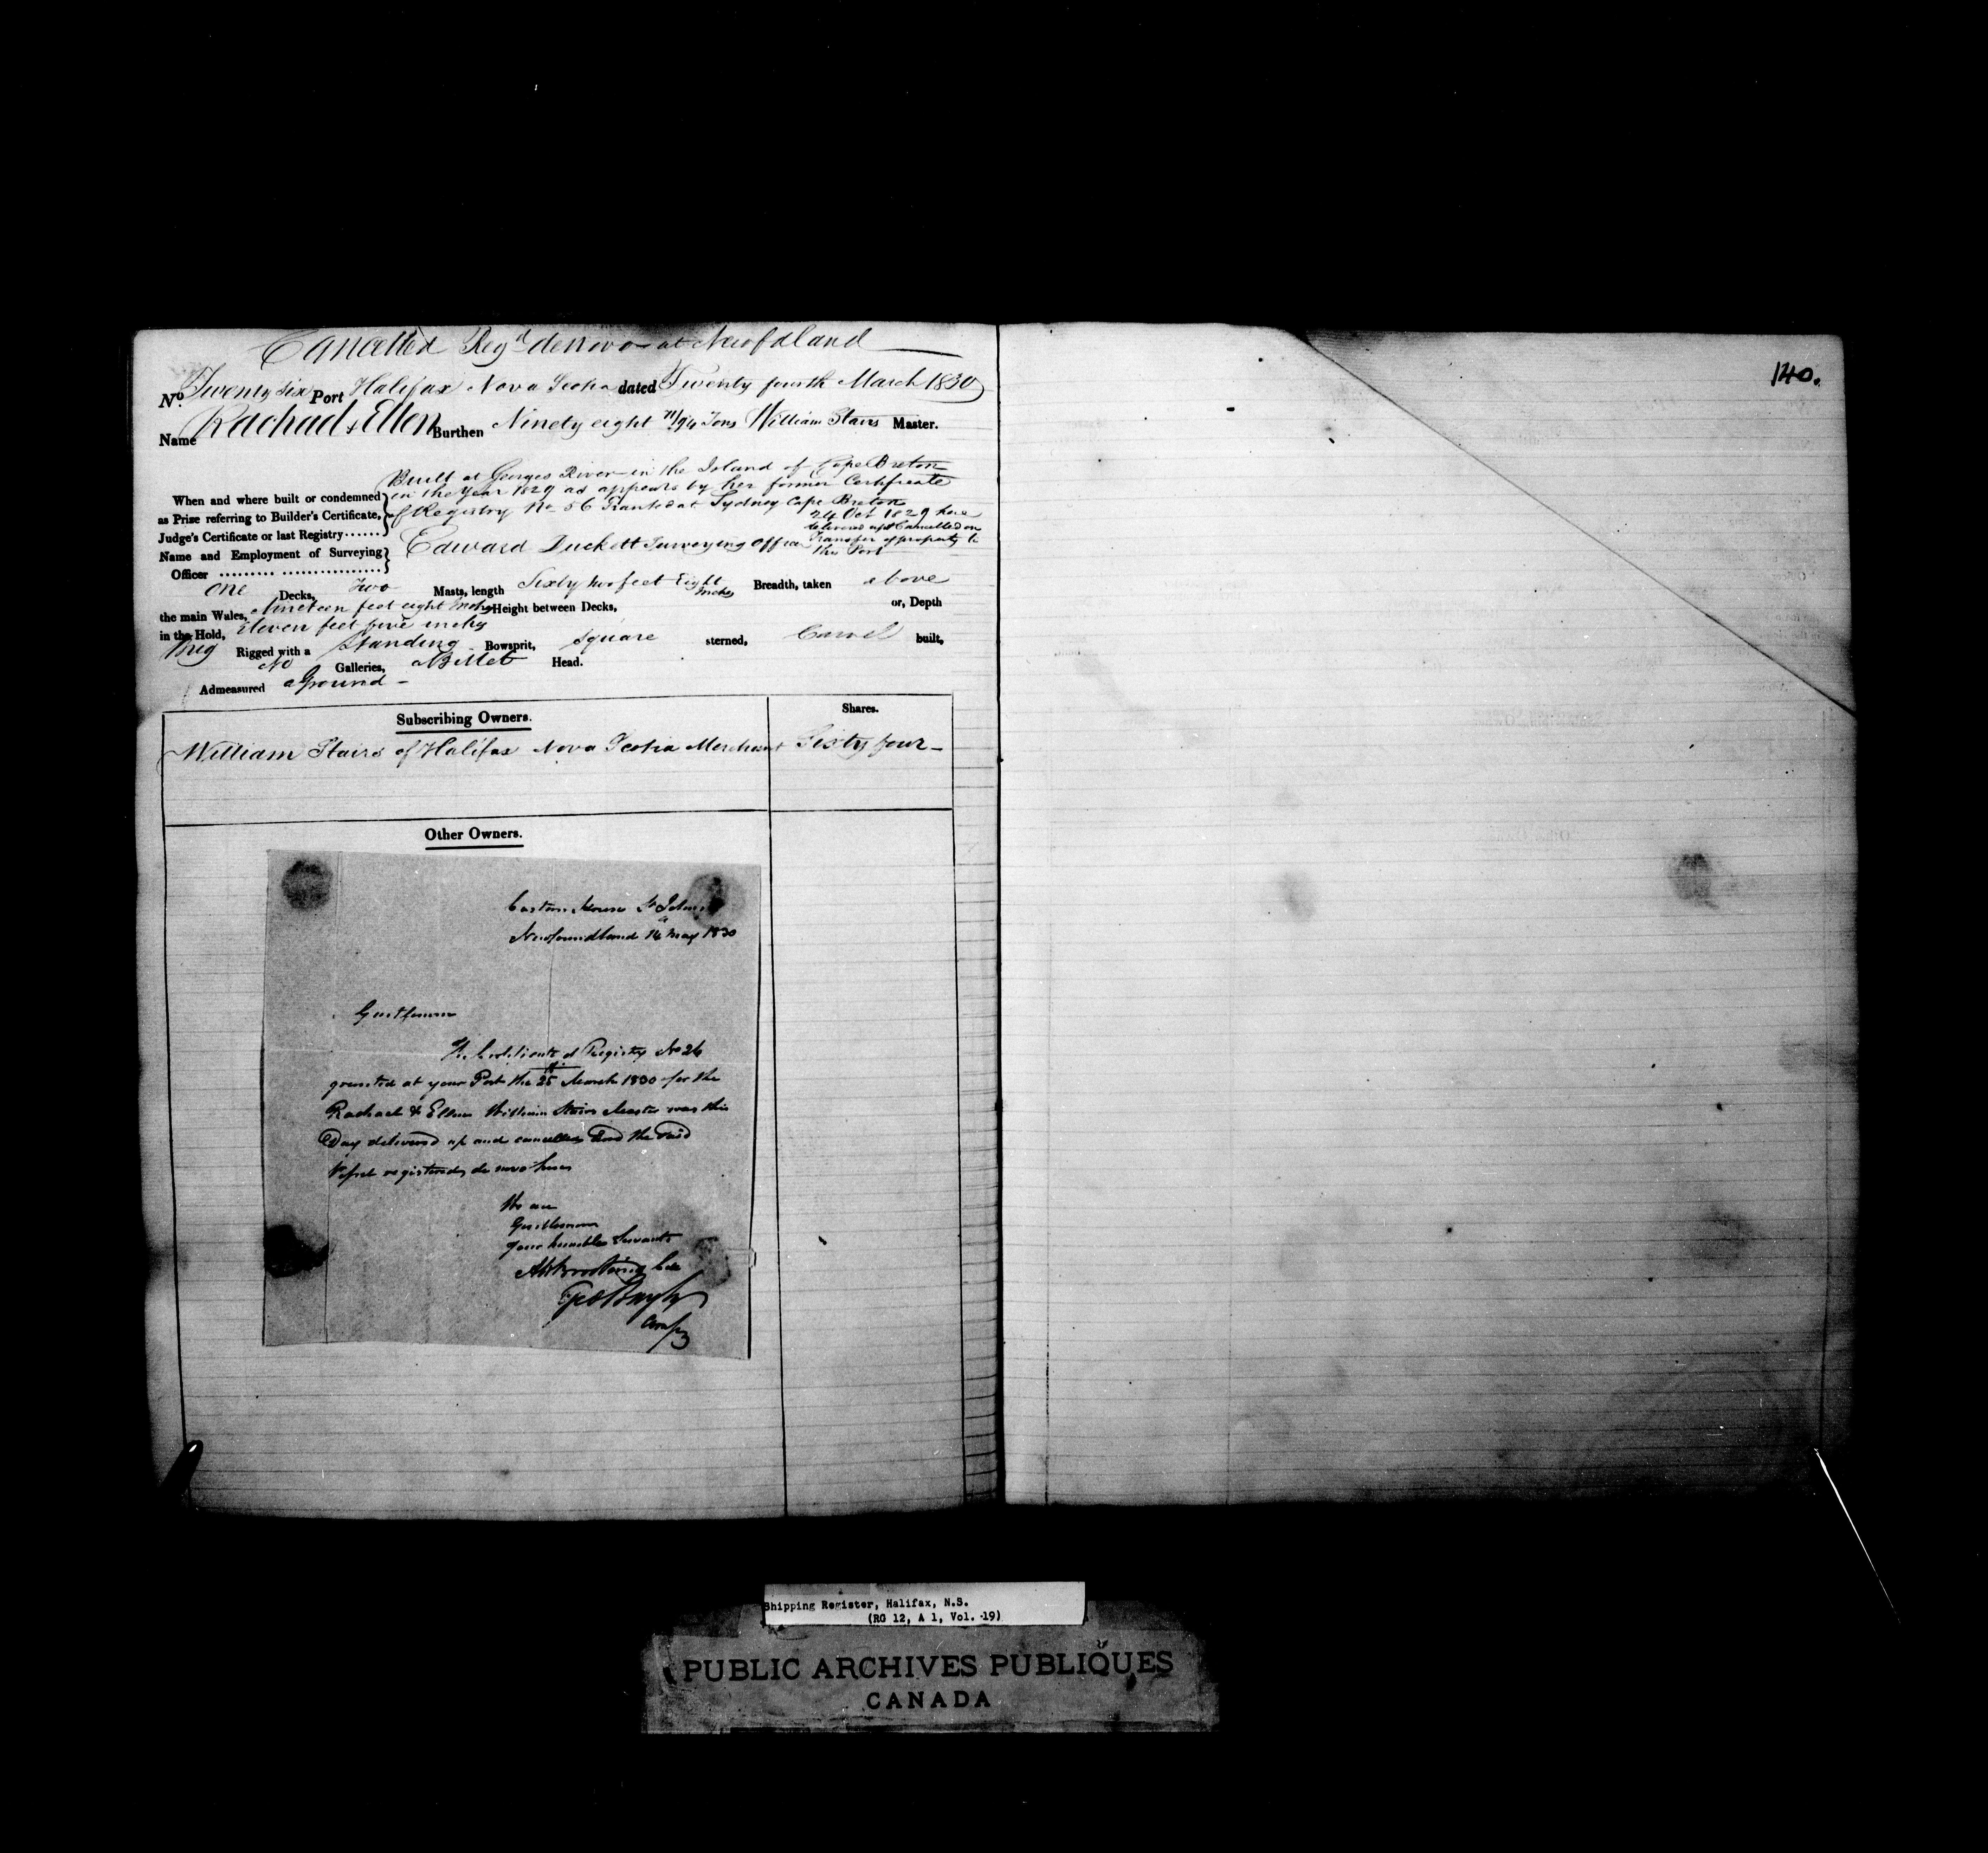 Cancelled Regd de novo at Newfdland
No. Twenty six Port Halifax Nova Scotia dated Twenty fourth March 1830
Name Rachael & Ellen Burthen Ninety eight 71/94 Tons William Stairs Master.
Built at Georges River in the Island of Cape Breton
in the Year 1829 as appears by her former Certificate
of Registry No 56 Granted at Sydney Cape Breton
24 Oct 1829 here
delivered up & Cancelled on
Transfer of property to
this Port
When and where built or condemned
as Prize referring to Builder's Certificate,
Judge's Certificate or last Registry......
Name and Employment of Surveying
Officer ......... ................
Edward Duckett Surveying Officer
One Decks, Two Masts, length Sixty two feet Eight Inches Breadth, taken above
the main Wales, Nineteen feet eight Inches Height between Decks, or, Depth
in the Hold, Eleven feet five inches
Brig Rigged with a Standing Bowsprit, Square sterned, Carvel built,
No Galleries, a Billet Head.
Admeasured aground -
Subscribing Owners. Shares.
William Stairs of Halifax Nova Scotia Merchant Sixty four
Other Owners.
Custom House St Johns
Newfoundland 14 May 1830
Gentlemen
The Certificate of Registry No 26
granted at your Port the 25th March 1830 for the
Rachael & Ellen William Stairs Master was this
Day delivered up and cancelled and the said
Vessel registered de novo here
We are
Gentlemen
Your humble Servants
Coll
Comp
140.
Shipping Register, Halifax, N.S.
(RG 12, A 1, Vol. 19)
PUBLIC ARCHIVES PUBLIQUES
CANADA